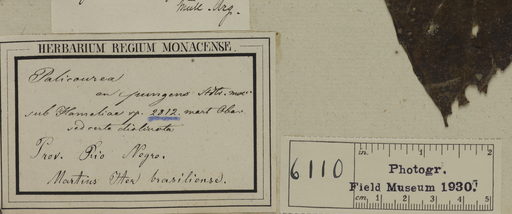 Müll. Arg.
HERBARIUM REGIUM MONACENSE.
Palicourea
an pungens
sub Hameliae sp. 2812. mart Obs.
sed certe distincta
Prov. Rio Negro.
Martius Iter brasiliense.
6110
in. 1 2
Photogr.
Field Museum 1930.
cm. 1 2 3 4 5